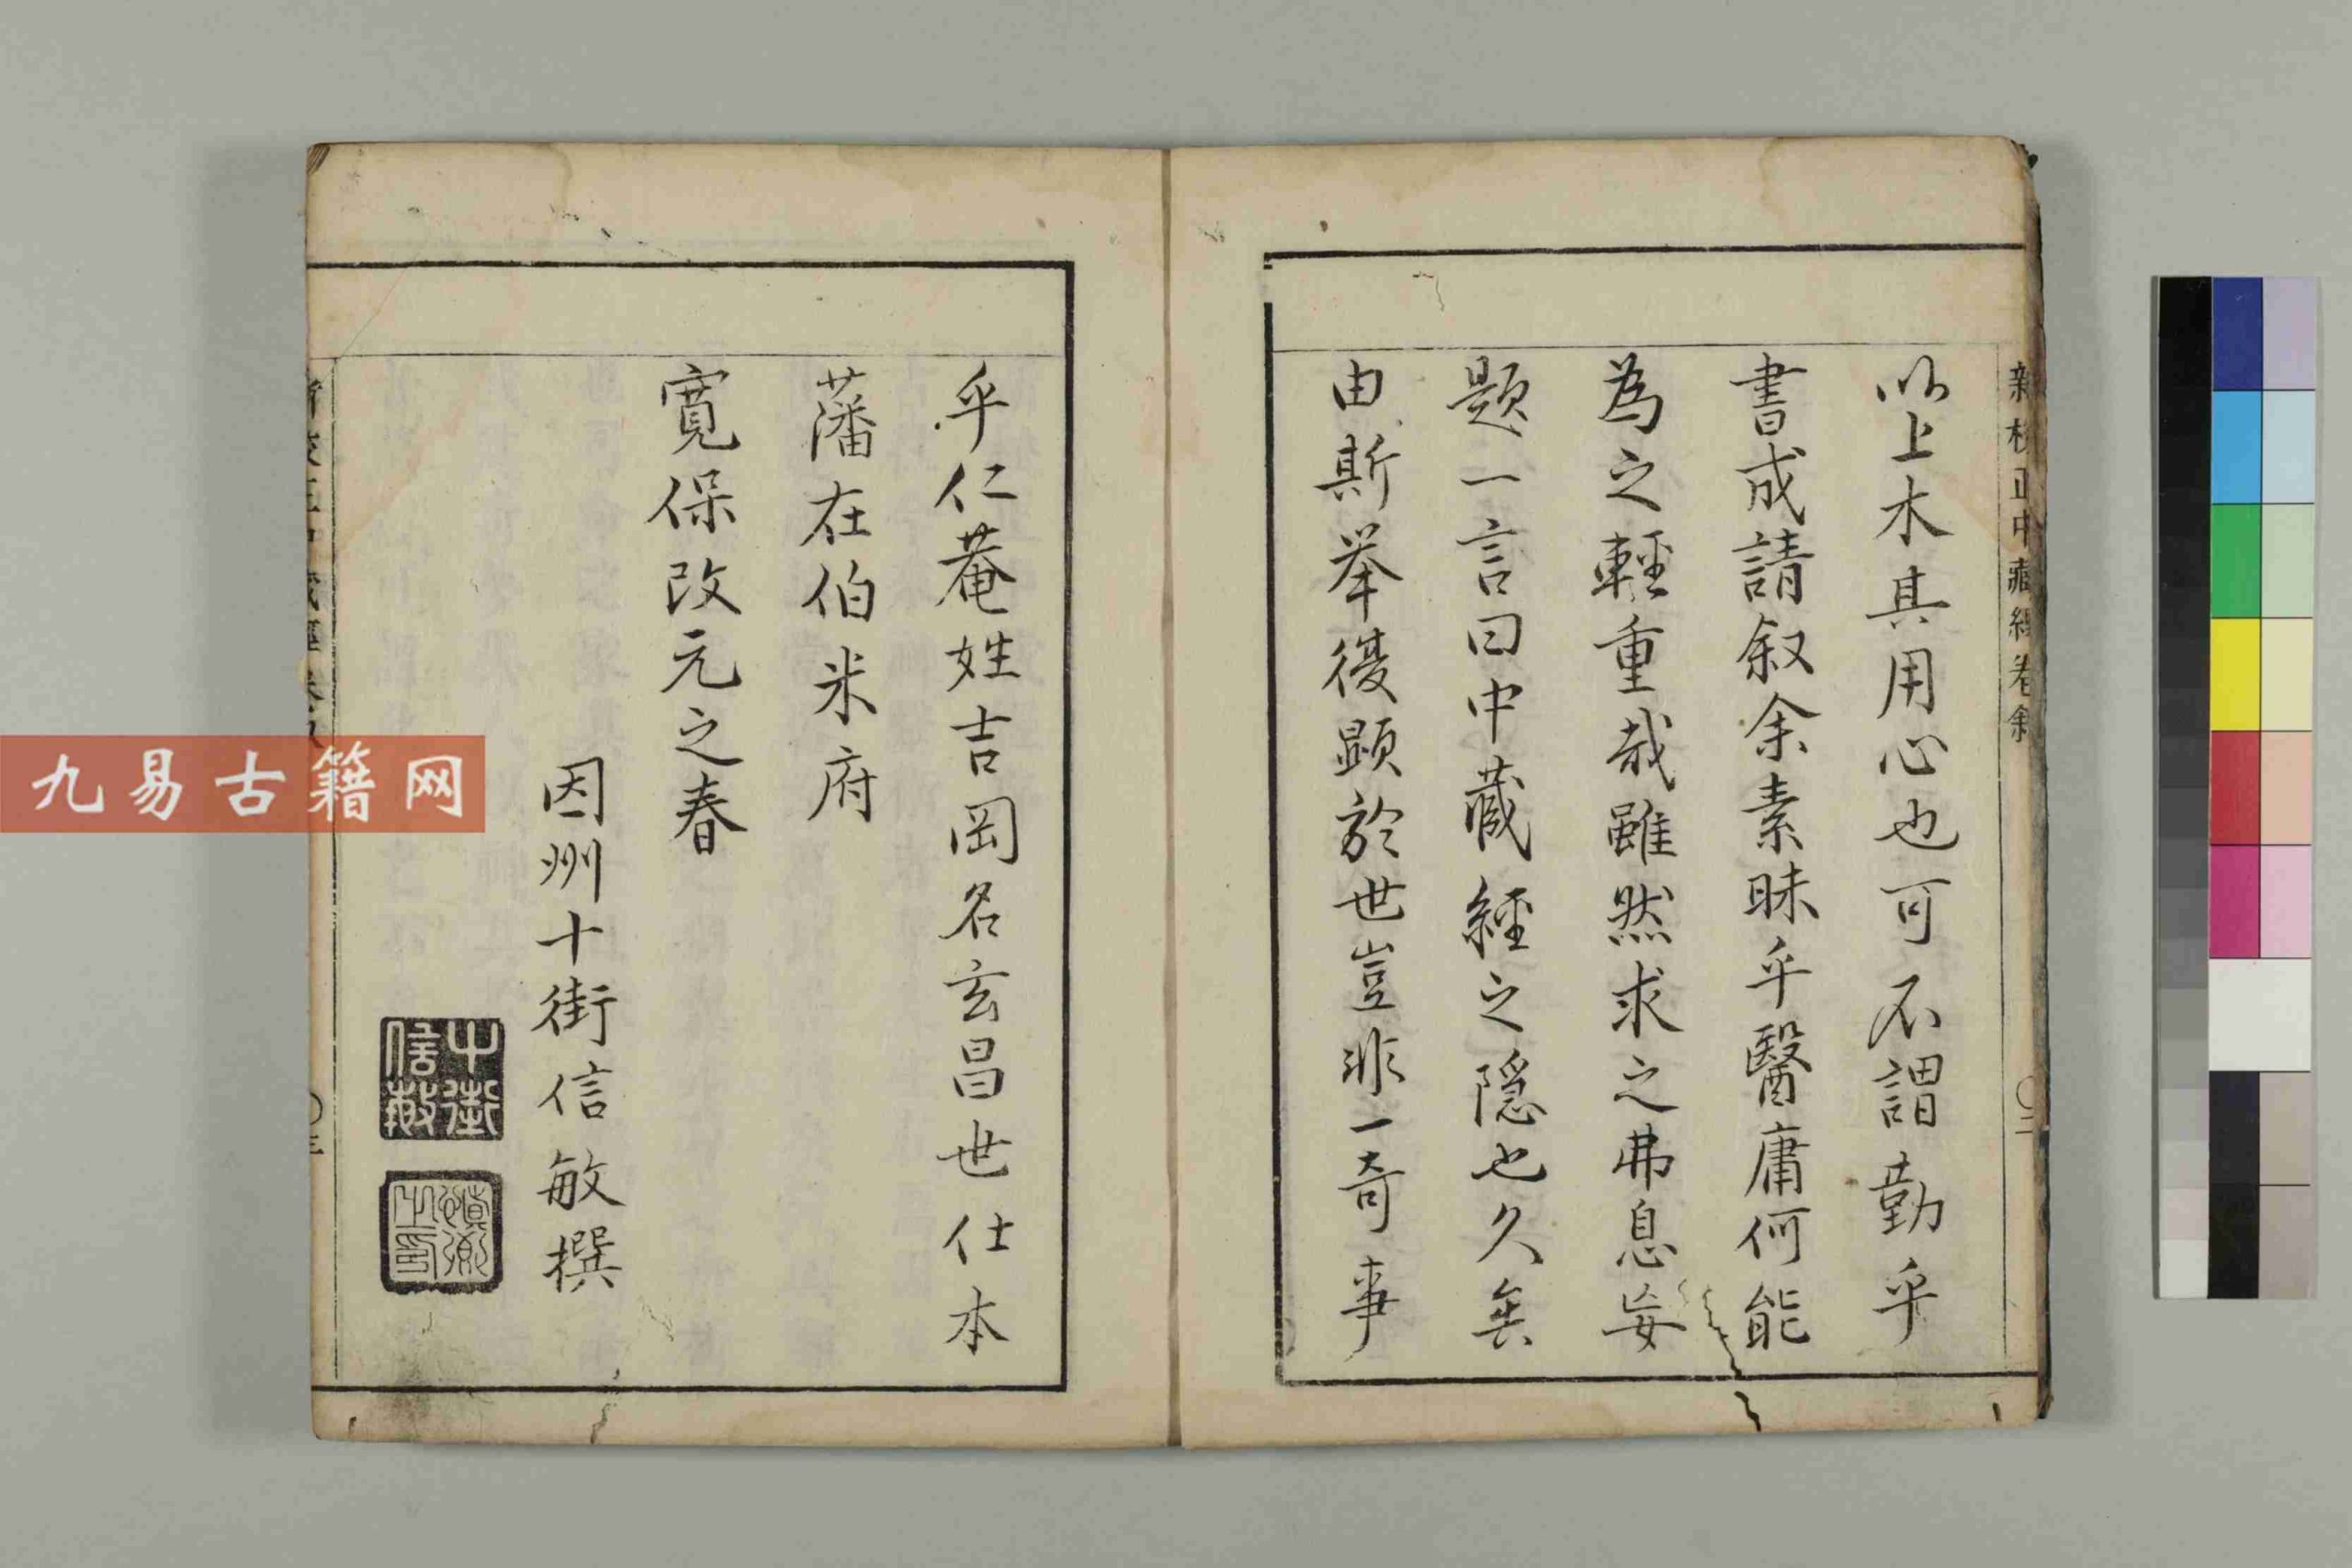 新校正中藏經卷叙
以上木其用心也可不謂勤乎
書成請叙余素昧乎醫庸何能
為之輕重哉雖然求之弗息妄
題一言曰中蔵經之隠也久矣
由斯举復顕於世豈非一奇事
乎仁菴姓吉岡名玄昌世仕本
藩在伯米府
寛保改元之春
因州十街信敏撰
九易古籍网